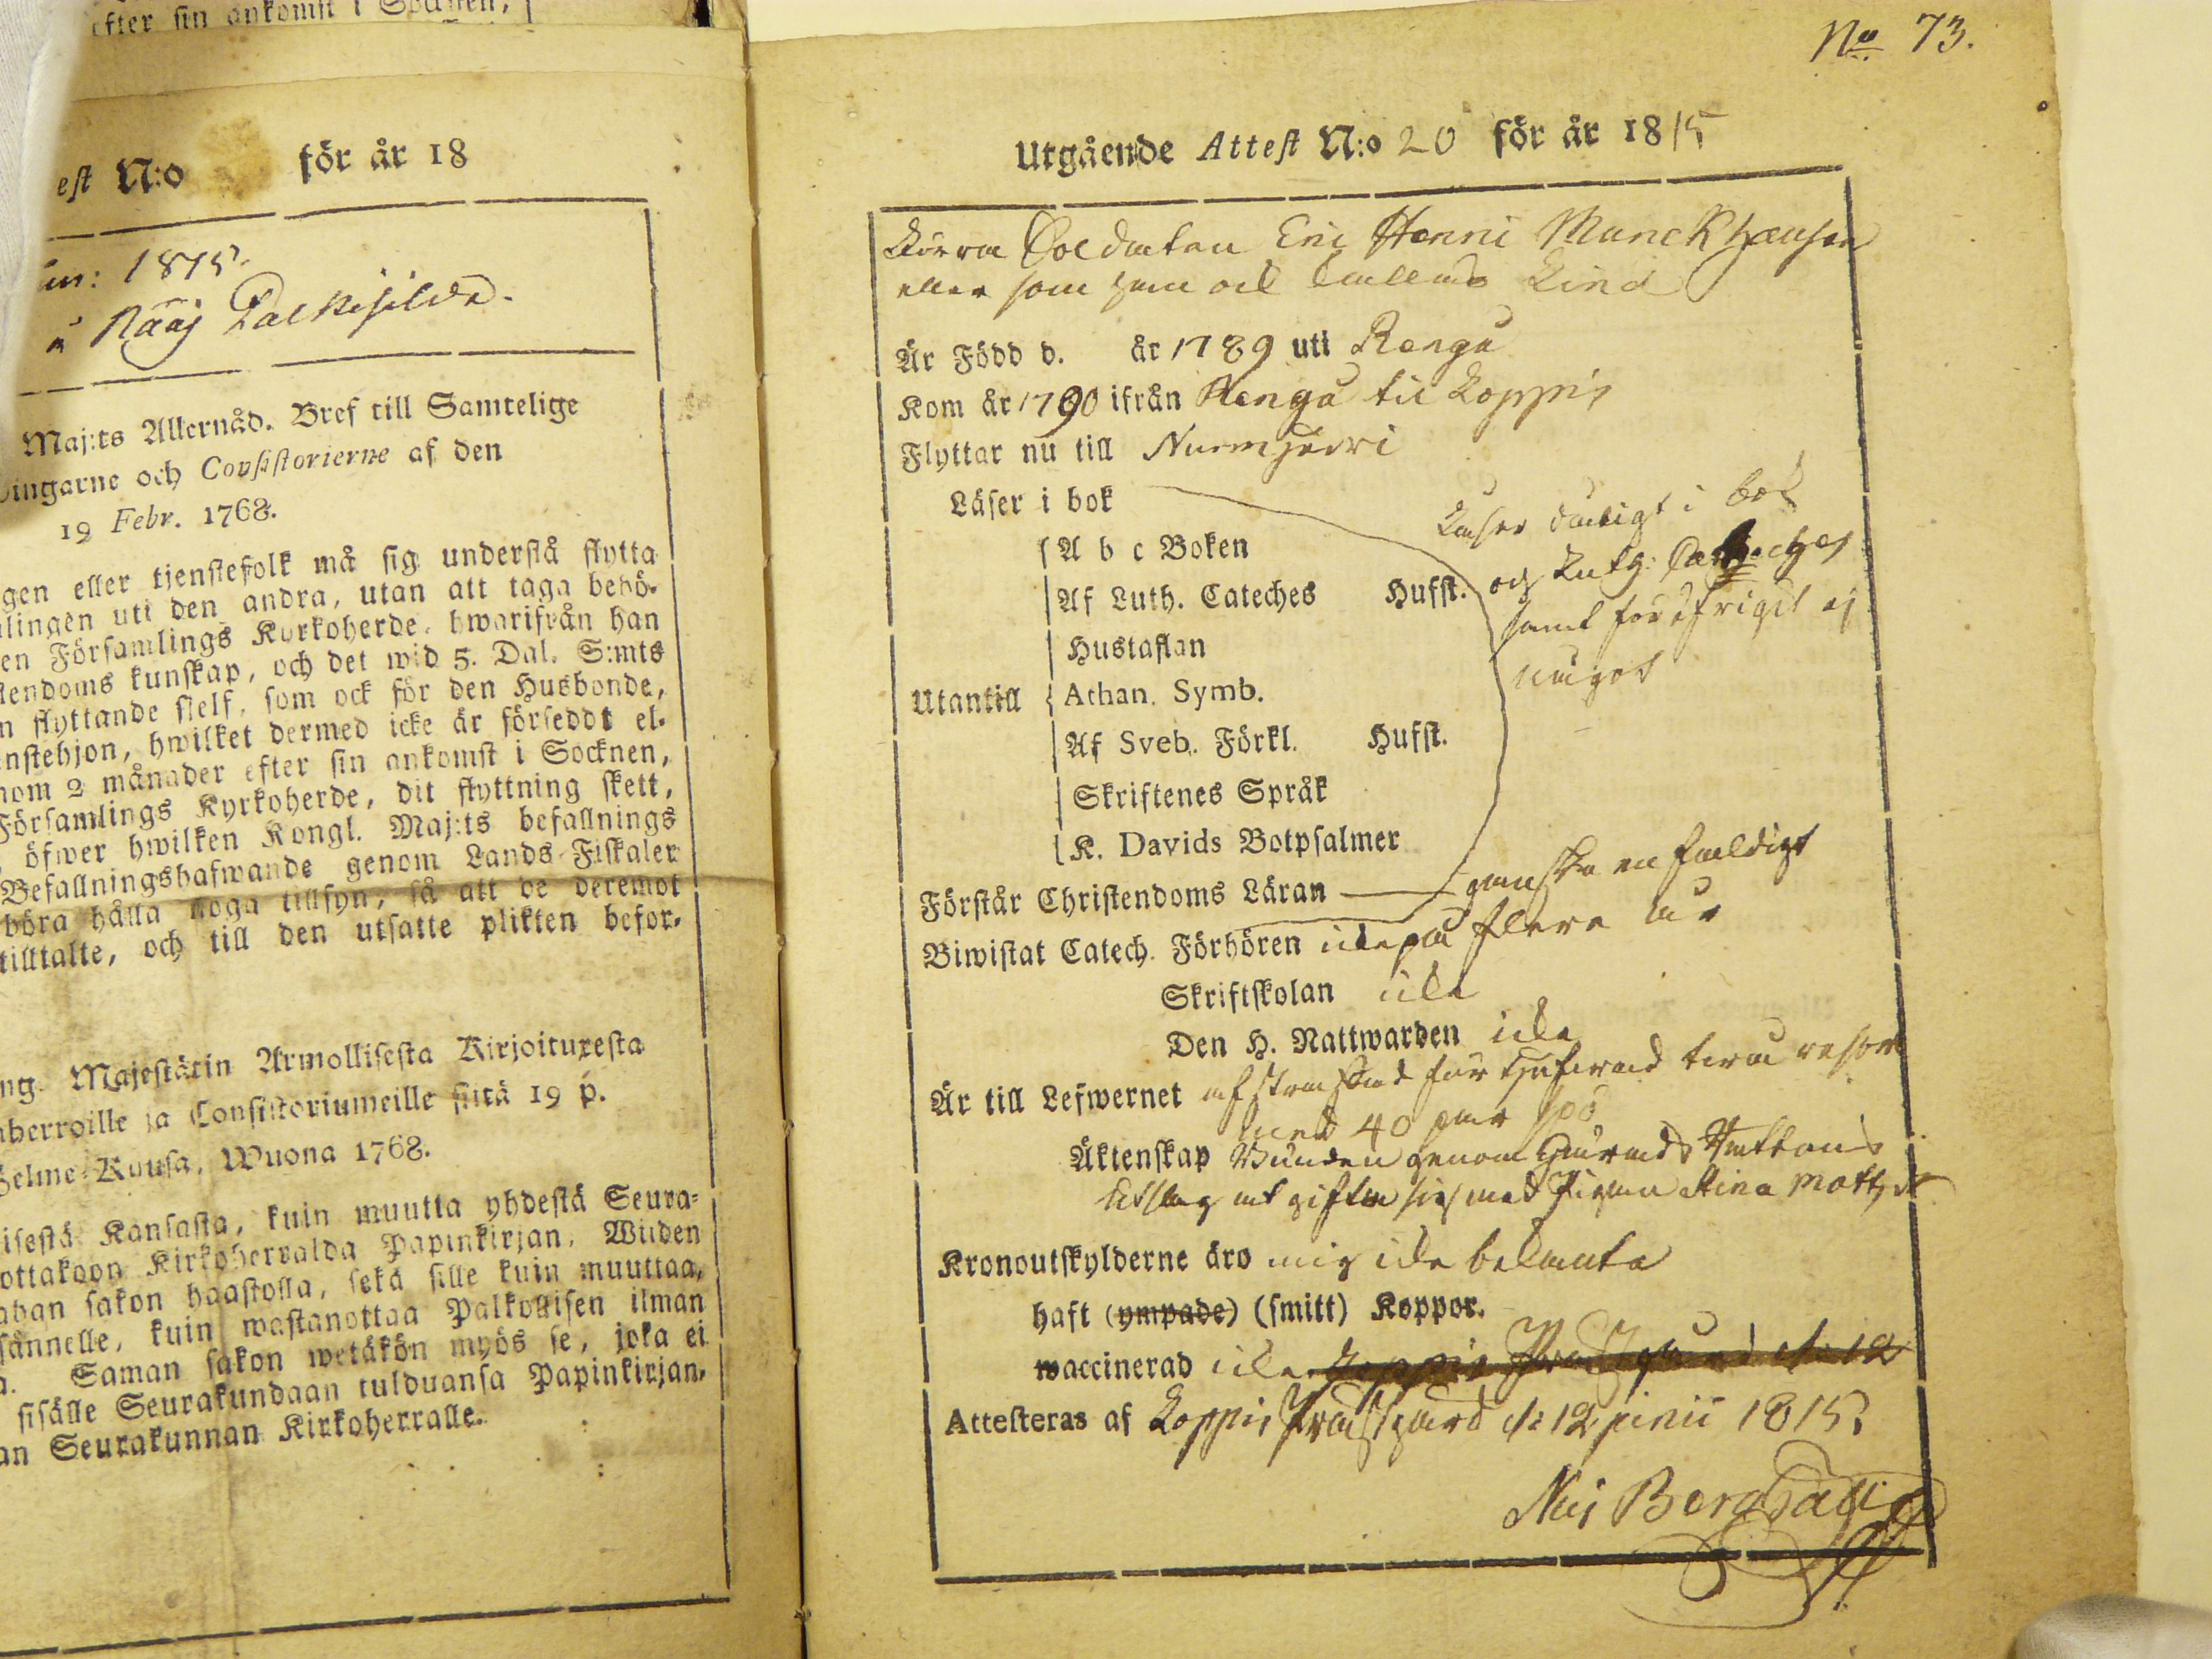 efter sin ankomst i Socknen,
est N:o för år 18
1815.
Maj:ts Allernåd. Bref till Samtelige
dingarne och Consistorierne af den
19 Febr. 1768.
gen eller tjenstefolk må sig understå flytta
lingen uti den andra, utan att taga behö-
en Församlings Kyrkoherde, hwarifrån han
stendoms kunskap, och det wid 5. Dal. S:mts
n flyttande sielf, som ock för den Husbonde,
nstehjon, hwilket dermed icke är förseddt el-
nom 2 månader efter sin ankomst i Socknen,
Församlings Kyrkoherde, dit flyttning skett,
öfwer hwilken Kongl. Maj:ts befallnings
Befallningshafwande genom Lands-Fiskaler
böra hålla noga tillsyn, så att de deremot
tilltalte, och till den utsatte plikten befor-
ng. Majestätin Armollisesta Kirjoituxesta
nherroille ja Consistoriumeille siitä 19 p.
Helme-Kuusa, Wuona 1768.
isestä Kansasta, kuin muutta yhdestä Seura-
ottakoon Kirkoherralda Papinkirjan, Wiiden
ahan sakon haastolla, sekä sille kuin muuttaa,
sännelle, kuin wastanottaa Palkollisen ilman
a. Saman sakon wetäkön myös se, joka ei
sisälle Seurakundaan tulduansa Papinkirjan,
an Seurakunnan Kirkoherralle.
No 73.
Utgående Attest N:o 20 för år 1815
Soldaten Eric Henric Munckhausen
eller som han ock kallas Lind
Är Född d. år 1789 uti Rengå
Kom år 1790 ifrån Rengå till Loppis
Flyttar nu till Nurmijärvi
Läser i bok Läser dåligt i bok
A b c Boken
Af Luth. Cateches Hufst. och Luth: Cateches
Hustaflan samt för öfrigit ej
Utantill Athan. Symb. något
Af Sveb. Förkl. Hufst.
Skriftenes Språk
K. Davids Botpsalmer
Förstår Christendoms Läran ganska enfaldigt
Biwistat Catech. Förhören icke på flere år
Skriftskolan icke
Den H. Nattwarden icke
Är till Lefwernet afstraffad för tjufnad twå resor
med 40 par spö
Äktenskap genom Härads Rättens
Utslag at gifta sig med Pigan Stina Matts dr
Kronoutskylderne äro mig icke bekanta
haft (ympade) (smitt) Koppor.
waccinerad icke Loppis Prästgård d: 12
Attesteras af Loppis Prästgård d: 12 junii 1815.